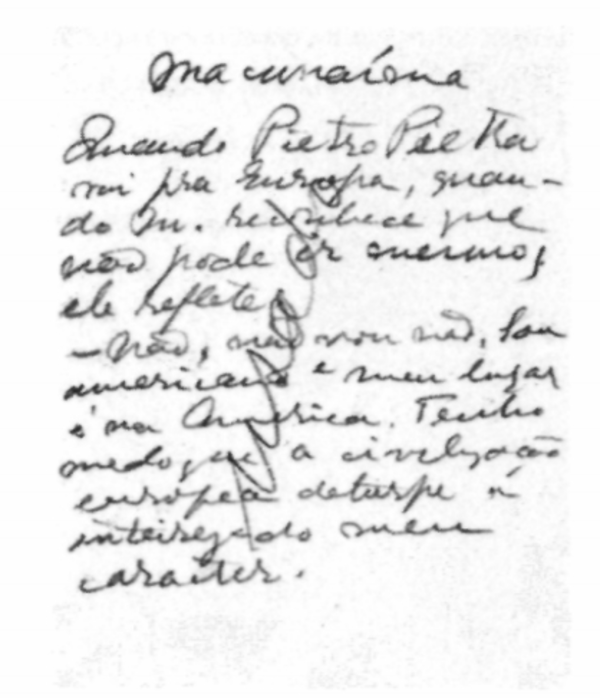 Macunaíma
Quando Pietro Pietra
vai pra Europa, quan-
do M. reconhece que
não pode ir mesmo,
ele reflete,
– Não, não vou não. Sou
americano e meu lugar
é na America. Tenho
medo que a civilização
europea deturpe a
inteireza do meu
caracter.